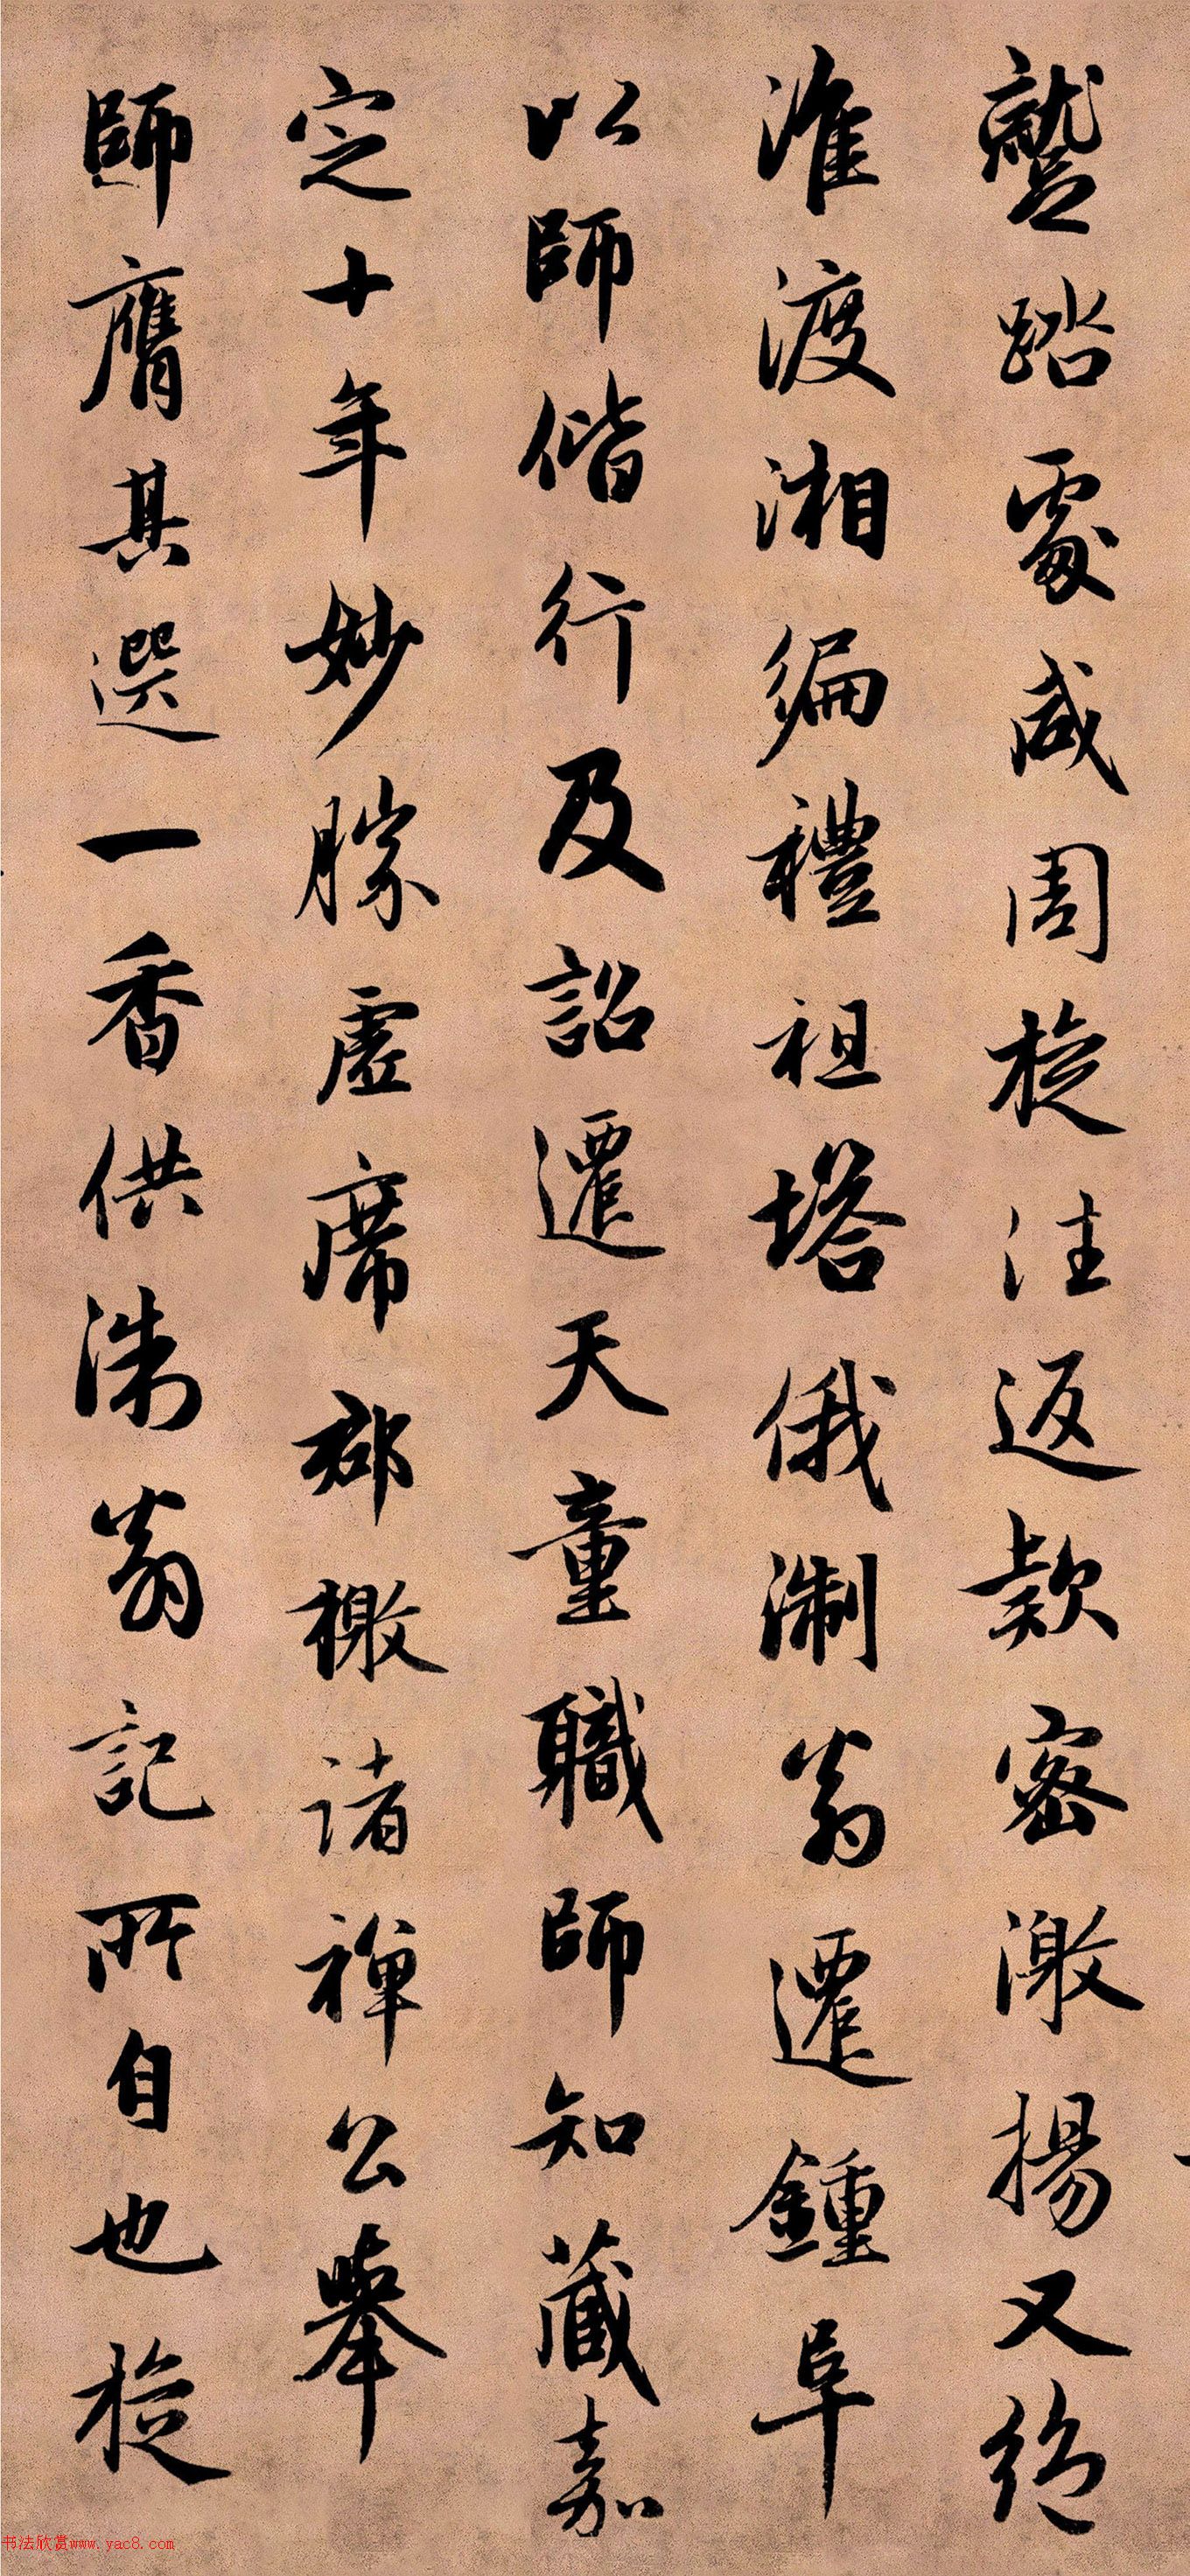 蹔踏處咸周旋往返款密激揚又絕
淮渡湘徧禮祖塔俄淛翁遷鍾阜
以師偕行及詔遷天童職師知藏嘉
定十年妙勝虛席郡檄諸禪公舉
師膺其選一香供淛翁記所自也旋
书法欣赏www.yac8.com